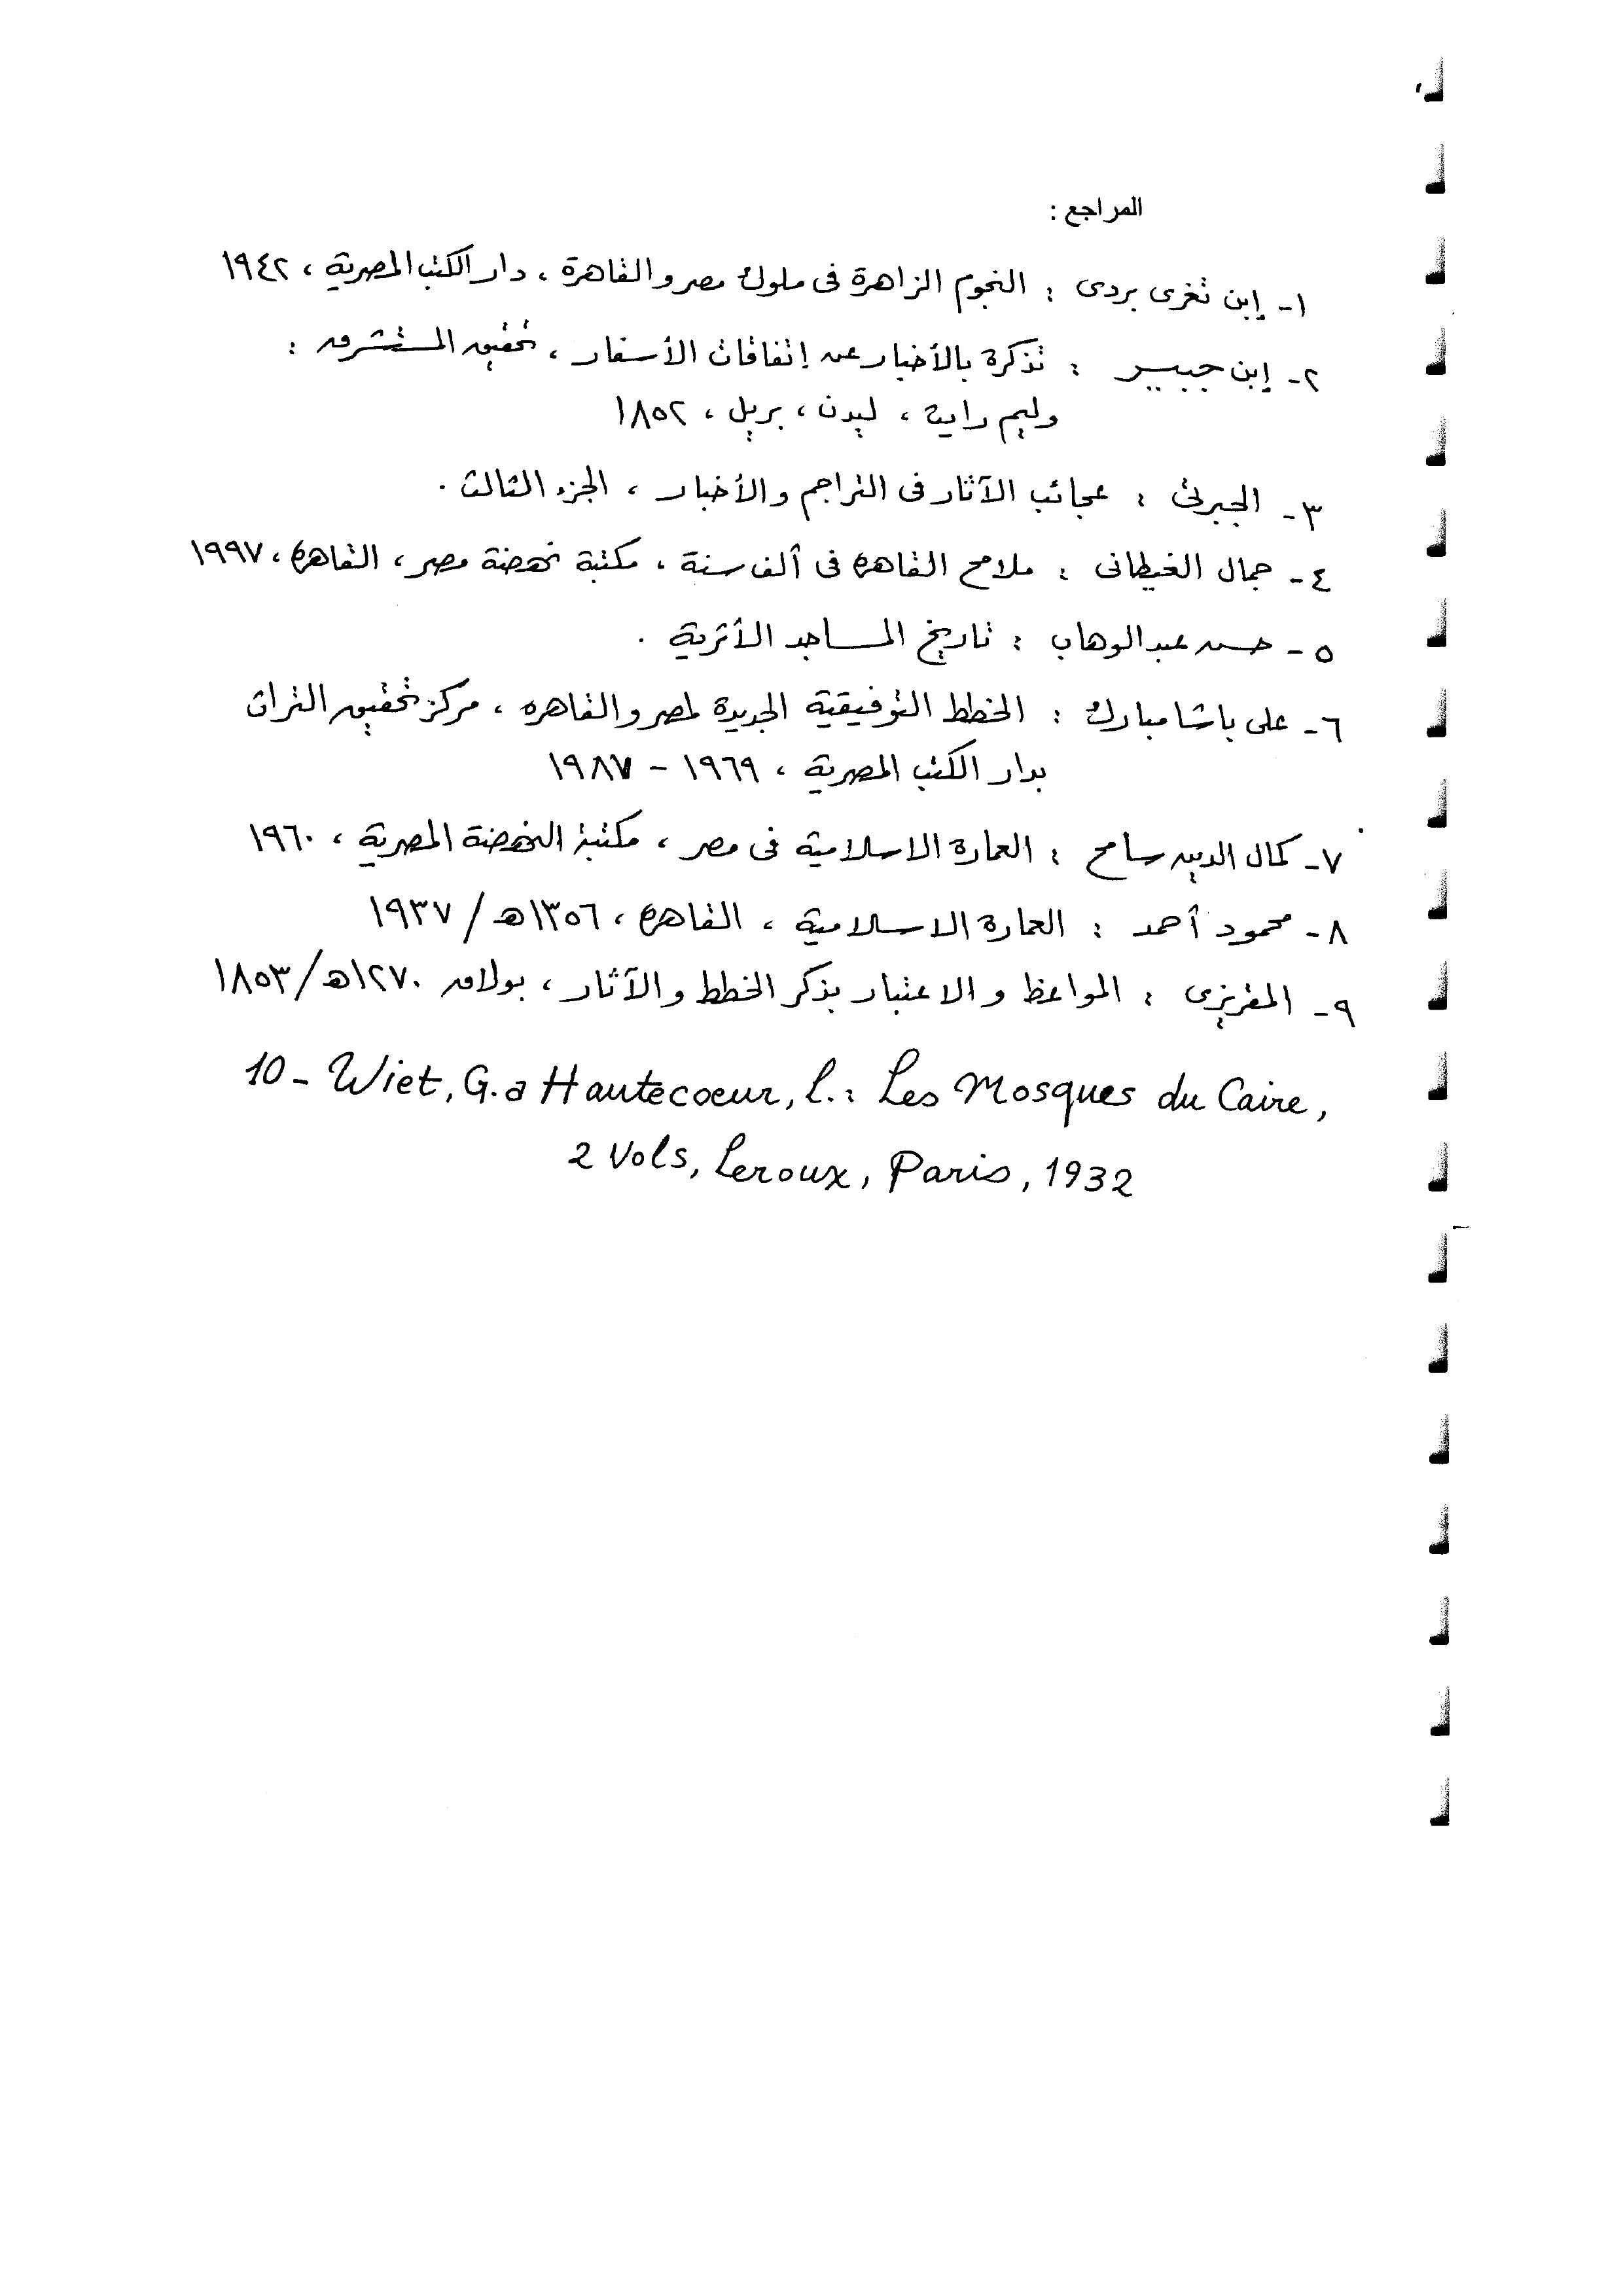 المراجع :
١- إبن تغرى بردى : النجوم الزاهرة فى ملوك مصر والقاهرة ، دار الكتب المصرية ، ١٩٤٢
٢- إبن جبير : تذكرة بالأخبار عن إتفاقات الأسفار ، تحقيق المستشرق :
وليم رايت ، ليدن ، بريل ، ١٨٥٢
٣- الجبرتى : عجائب الآثار فى التراجم والأخبار ، الجزء الثالث .
٤- جمال الغيطانى : ملامح القاهرة فى ألف سنة ، مكتبة نهضة مصر ، القاهرة ، ١٩٩٧
٥- حسن عبد الوهاب : تاريخ المساجد الأثرية .
٦- على باشا مبارك : الخطط التوفيقية الجديدة لمصر والقاهره ، مركز تحقيق التراث
بدار الكتب المصرية ، ١٩٦٩ - ١٩٨٧
٧- كمال الدين سامح : العمارة الاسلامية فى مصر ، مكتبة النهضة المصرية ، ١٩٦٠
٨- محمود أحمد : العمارة الاسلامية ، القاهرة ، ١٣٥٦هـ / ١٩٣٧
٩- المقريزى : المواعظ والاعتبار بذكر الخطط والآثار ، بولاق ١٢٧٠هـ / ١٨٥٣
10 - Wiet, G. a Hautecoeur, L. : Les Mosques du Caire,
2 Vols, Leroux, Paris, 1932